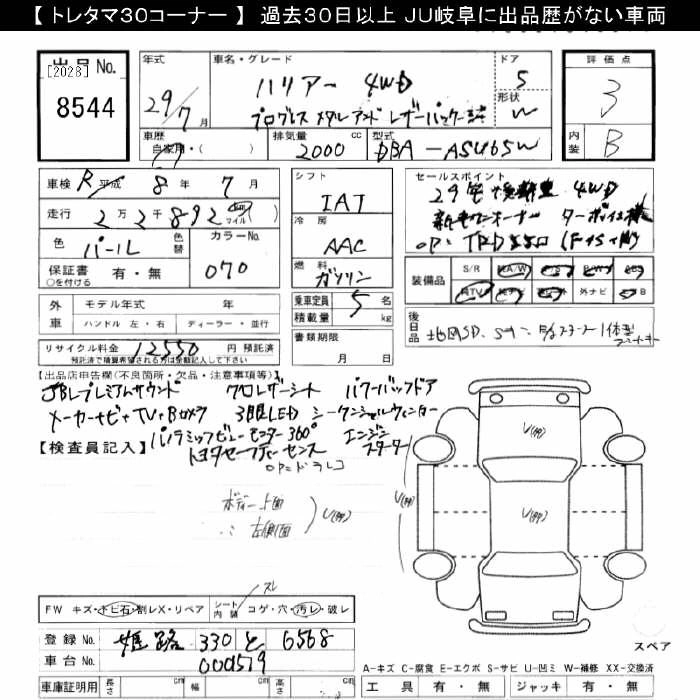 【 トレタマ30コーナー 】 過去30日以上 JU岐阜に出品歴がない車両
出品No. [2028]
8544
年式
29/7月
車名・グレード
ハリアー 4WD
プログレス メタル アンド レザーパッケージ
ドア
5
形状
W
評価点
3
内装
B
車歴
自家用・( )
排気量 cc
2000
型式
DBA-ASU65W
車検 R 平成 8年 7月
走行 2万2千892 km マイル
色 パール
色替
カラーNo.
070
保証書 有・無
○を付ける
シフト
IAT
冷房
AAC
燃料
ガソリン
乗車定員 5名
積載量 kg
書類期限
月 日
セールスポイント
4WD
新車ワンオーナー ターボ
OP: TRD
装備品
S/R A/W P/S P/W ABS
TV ナビ 革 外ナビ
後日品
地図SD.
外車
モデル年式 年
ハンドル 左・右 ディーラー・並行
リサイクル料金 12550円 預託済
預託済で積算希望される方は金額記入して下さい
【出品店申告欄(不良箇所・欠品・注意事項等)】
JBLプレミアムサウンド クロレザーシート パワーバックドア
メーカーナビ+TV+Bカメラ 3眼LED シーケンシャルウィンカー
パノラミックビューモニター360° エンジンスターター
【検査員記入】
トヨタセーフティーセンス
OP=ドラレコ
ボディー上面
〃 左側面
U(押)
U(押)
U(押)
U(押)
スレ
FW キズ・トビ石・割レX・リペア
シート内装 コゲ・穴・汚レ・破レ
登録No. 姫路 330 と 6568
車台No. 0001519
車庫証明用 長さ cm 幅 cm 高さ cm
スペア
A-キズ C-腐食 E-エクボ S-サビ U-凹ミ W-補修 XX-交換済
工具 有・無 ジャッキ 有・無